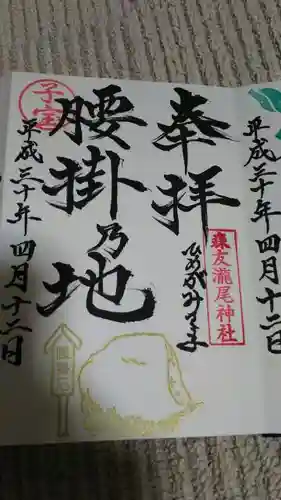 平成三十年四月十二日
奉拝
ひめがみさま
森友瀧尾神社
腰掛乃地
子宝
平成三十年四月十二日